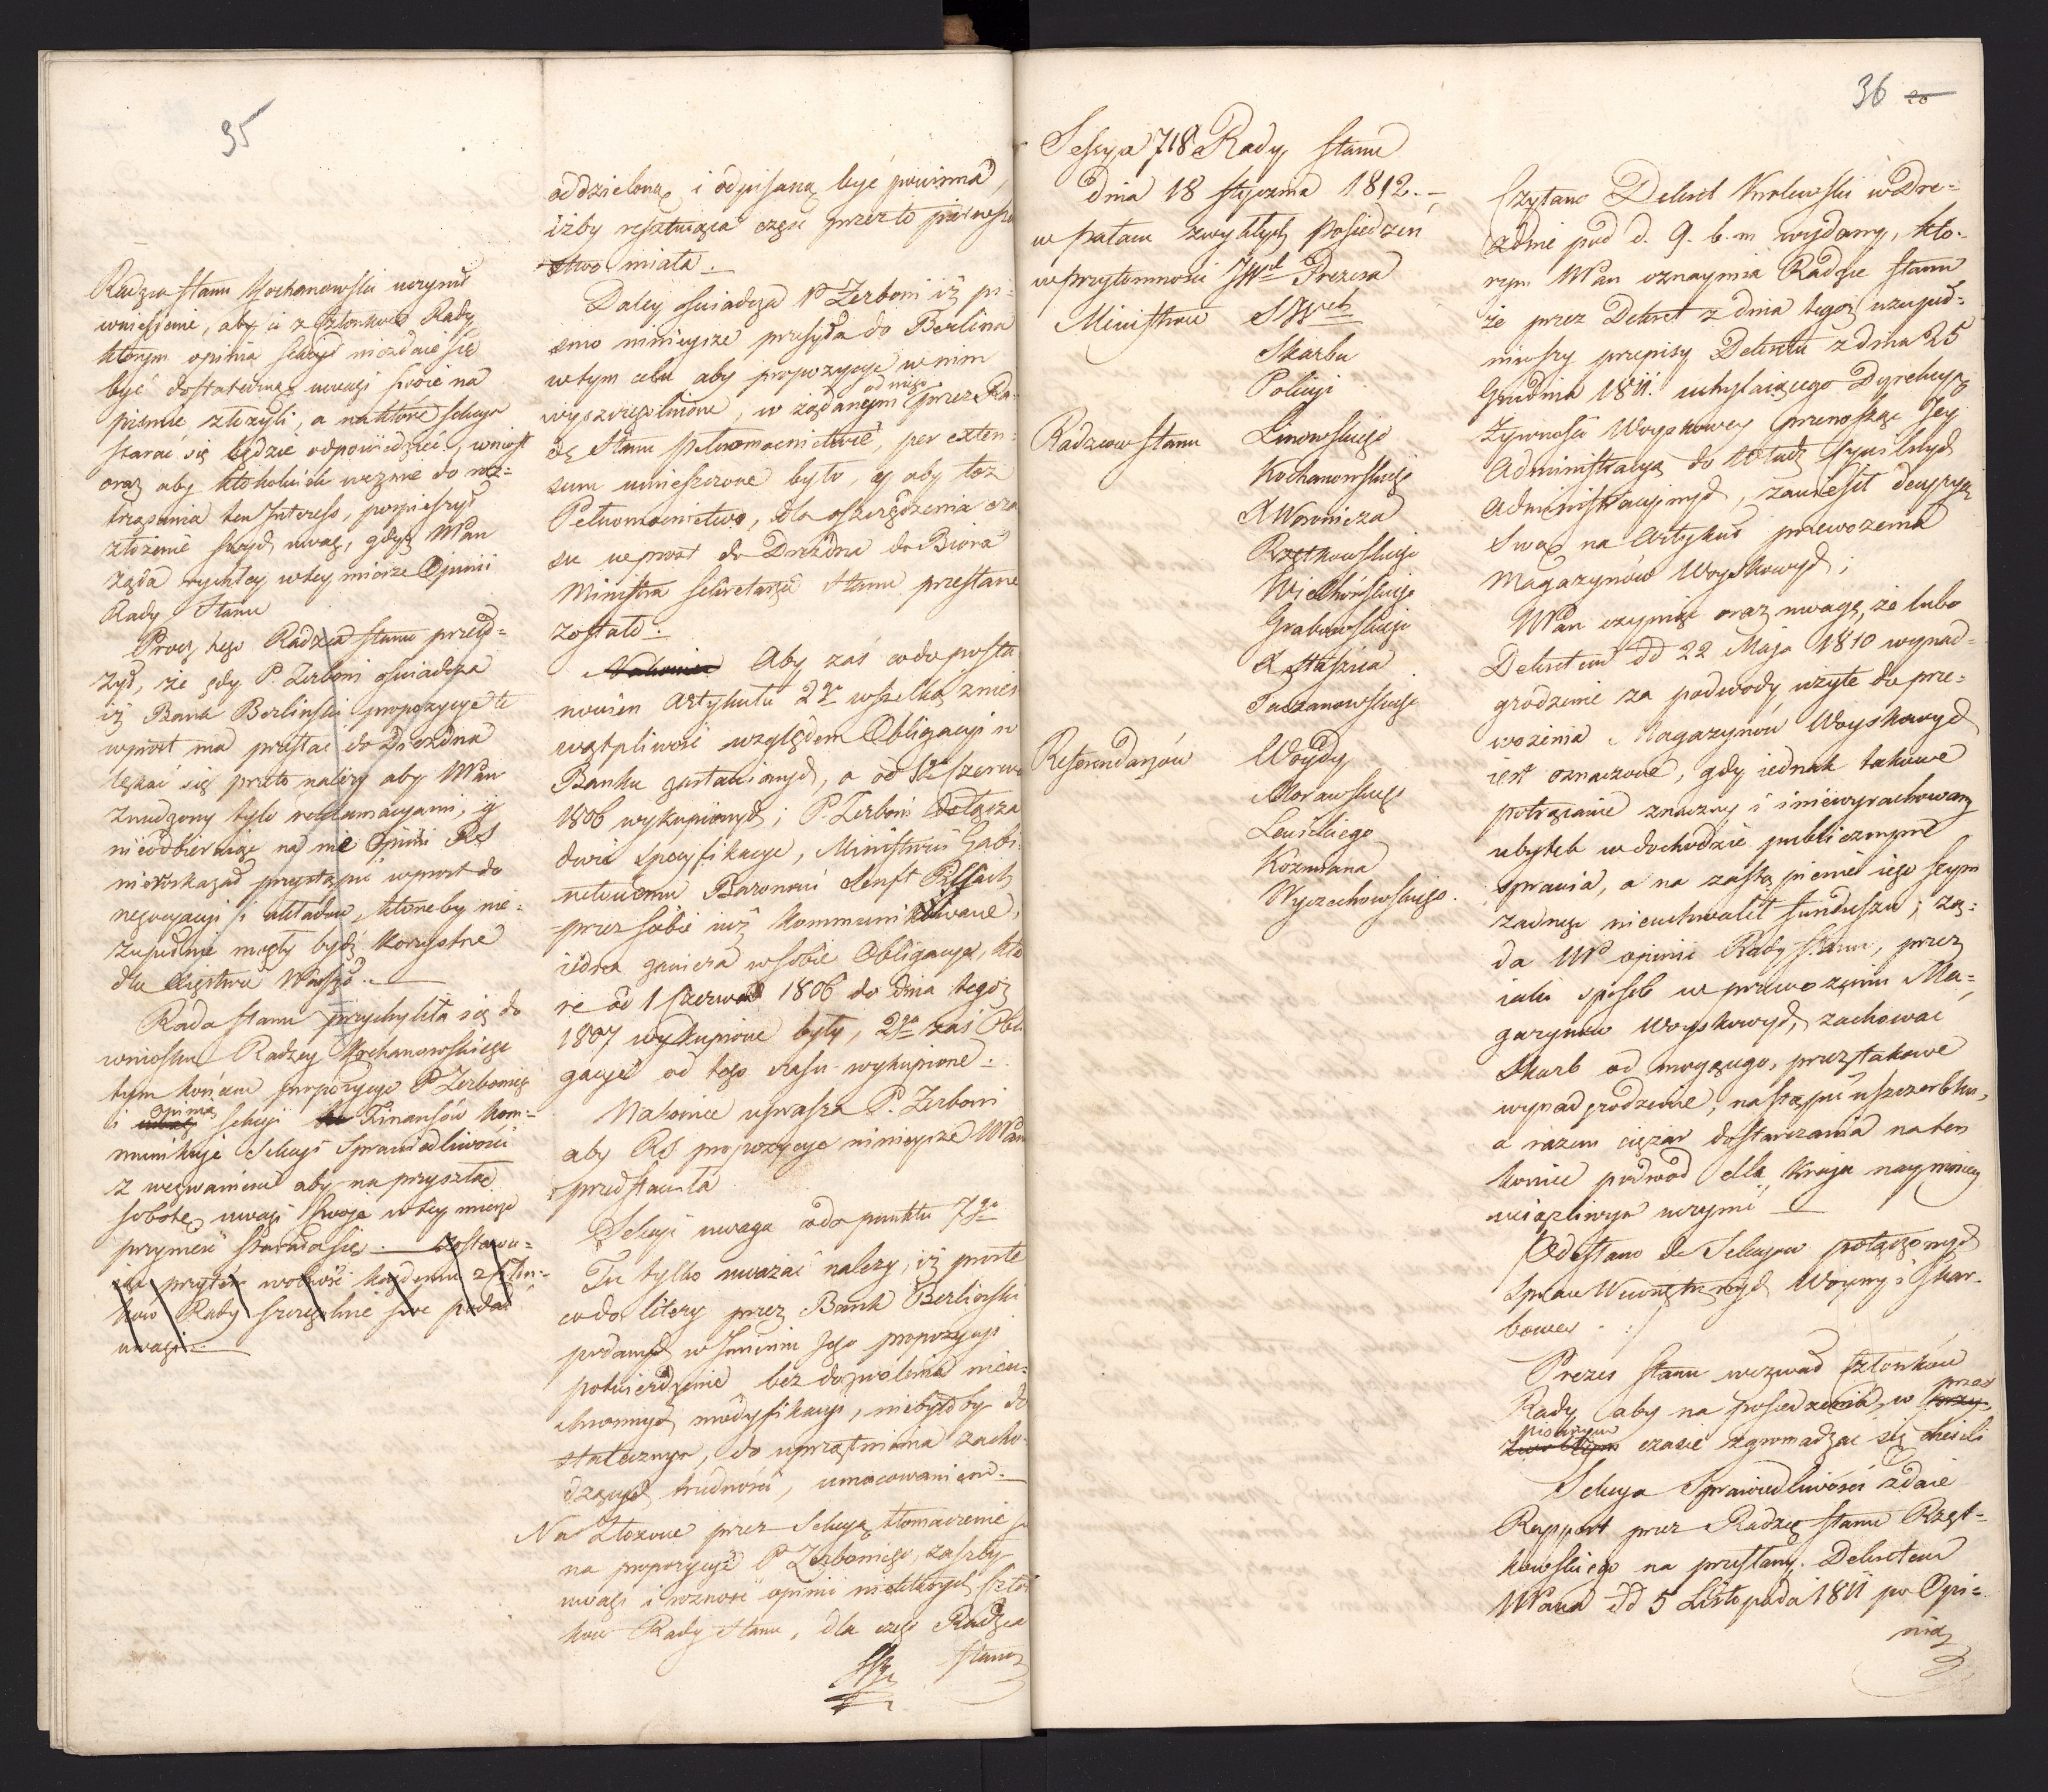 35
Radzca Stanu Kochanowski uczynił
wniesienie, aby ci z Członków Rady
którym opinia Sekcyi niezdaie się
być dostateczną uwagi swoie na
pismie złożyli, a na które Sekcya
starać się będzie odpowiedzieć, wniosł
oraz aby ktokolwiek wezmie do roz-
trząsania ten Interess, pospieszył
złożenie swych uwag, gdyż NPan
żąda rychłey w tey mierze Opinii
Rady Stanu
Procz tego Radzca Stanu przeło-
żył, że gdy P. Zerboni oświadcza
iż Bank Berlinski propozycye te
wprost ma przesłać do Drezdna
lękać się przeto należy aby NPan
znudzony tylo reklamacyami, y
nieodbieraiąc na nie Opinii RS
nierozkazał przystąpić wprost do
negocyacyi i układów, któreby nie-
zupełnie mogły bydź korzystne
dla Xięstwa Warszgo.
Rada Stanu przychyliła się do
wniosku Radzcy Kochanowskiego
tym końcem propozycye P Zerboniego
i opinią Sekcyi Finansów kom-
munikuje Sekcyi Sprawiedliwości
z wezwaniem aby na przyszłą
sobotę uwagi swoje w tey mierze
przynieść starała się. zostawu-
iąc przytém wolność każdemu z Człon-
ków Rady szczególnie swe podać
uwagi
oddzieloną i odpisaną być powinna,
iżby resztuiąca część przez to pierwszeń
stwo miała.
Daley oświadcza P Zerboni iż pi-
smo ninieysze przesyła do Berlina
w tym celu aby propozycye w nim
wyszczególnione, w żądanym od niego przez Ra-
dę Stanu pełnomocnictwie, per exten-
sum umieszczone były, y aby toż
Pełnomocnictwo, dla oszczędzenia cza
su wprost do Drezdna do Biora
Ministra Sekretarza Stanu przesłane
zostało.
Nakoniec Aby zaś co do posta
nowien Artykułu 2go wszelką znieść
wątpliwość względem Obligacyi w
Banku zastawionych, a od 1go Czerwca
1806 wykupionych; P. Zerboni dołącza
dwie specyfikacye, Ministrowi Gabi-
netowemu Baronowi Senft Pilsach
przez siebie iuż kommunikowane,
iedna zawiera w sobie Obligacye, któ
re od 1 Czerwca 1806 do dnia tegoż
1807 wykupione były, 2ga zaś Obli
gacye od tego czasu wykupione.
Nakoniec uprasza P. Zerboni
aby RS propozycye ninieysze NPanu
przedstawiła
Sekcyi uwaga co do punktu 7go
Tu tylko uważać należy, iż proste
co do litery przez Bank Berlinski
podanych w Imieniu Jego propozycyi
potwierdzenie bez dozwolenia nieu-
chronnych modyfikacyi, niebyłoby do
statecznym, do uprzątnienia zacho-
dzących trudności, umocowaniem.
Na złożone przez Sekcyą tłomaczenie
na propozycye P Zerboniego, zaszły
uwagi i rożność opinii niektórych Człon
kow Rady Stanu, dla czego Radzca
Stanu
36 20
Sessya 718 Rady Stanu
dnia 18 Stycznia 1812.
w pałacu zwykłych Posiedzeń
w przytomności JW Prezesa
Ministrów SWch
Skarbu
Policyi
Radzców Stanu Linowskiego
Kochanowskiego
X Woronicza
Rzętkowskiego
Wielhórskiego
Grabowskiego
X Staszica
Tarzanowskiego
Referendarzów Woydy
Morawskiego
Lewickiego
Kozmiana
Wyczechowskiego.
Czytano Dekret Królewski w Dre-
zdnie pod d. 9. b. m wydany, któ-
rym NPan oznaymia Radzie Stanu
że przez Dekret z dnia tegoż uzupeł-
niwszy przepisy Dekretu z dnia 25
Grudnia 1811. uchylaiącego Dyrekcyą
Żywności Woyskowey przenosząc Jey
Administracyą do Władz Cywilnych
Administracyinych, zawiesił decyzyą
Swą na Artykuł przewożenia
Magazynów Woyskowych;
NPan czyniąc oraz uwagę, że lubo
Dekretem dd 22 Maja 1810 wynad-
grodzenie za podwody użyte do prze-
wożenia Magazynów Woyskowych
iest oznaczone, gdy iednak takowe
potrącanie znaczny i niewyrachowany
ubytek w dochodzie publicznym
sprawia, a na zastąpienie iego Seym
żadnego nieuchwalił funduszu; żą-
da NP opinii Rady Stanu, przez
iaki sposób w przewożeniu Ma-
gazynów Woyskowych, zachować
Skarb od mogącego, przez takowe
wynadgrodzenie, nastąpić uszczerbku,
a razem ciężar dostarczania na ten
koniec podwod dla kraju naymniey
uciążliwym uczynić
Odesłano do Sekcyow połączonych
Spraw Wewnętrznych Woyny i Skar-
bowey.
Prezes Stanu wezwał Członków
Rady aby na posiedzenia w prze
pisanym czasie zgromadzać się chcieli
Sekcya Sprawiedliwości zdaie
Rapport przez Radzcę Stanu Rzęt-
kowskiego na przesłany Dekretem
NPana dd 5 Listopada 1811 po Opi-
nią